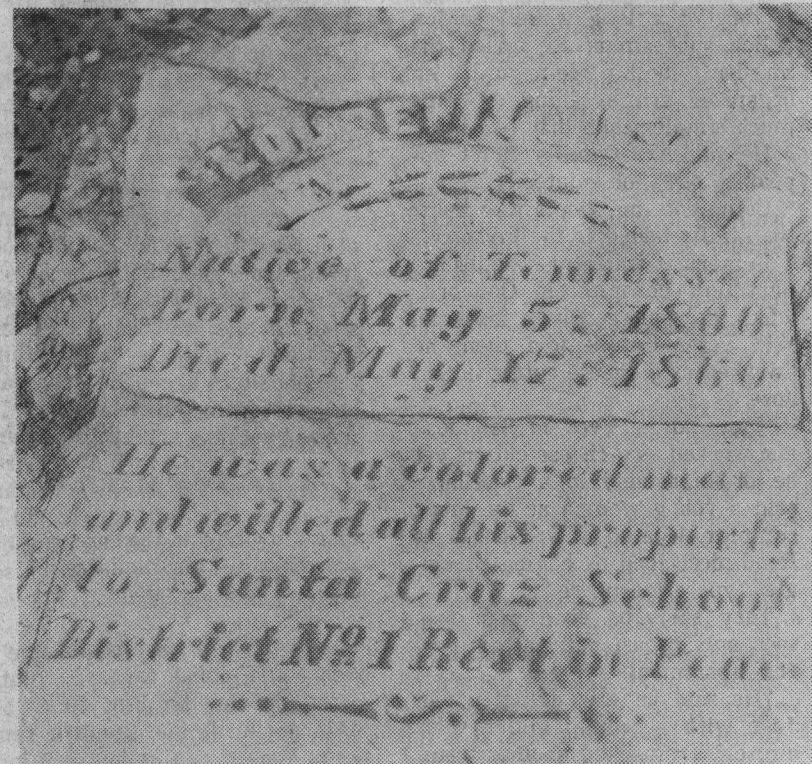 LOUDEN
Native of Tennessee
Born May 5: 1800
Died May 17: 1860
He was a colored man
and willed all his property
to Santa Cruz School
District No. 1 Rest in Peace